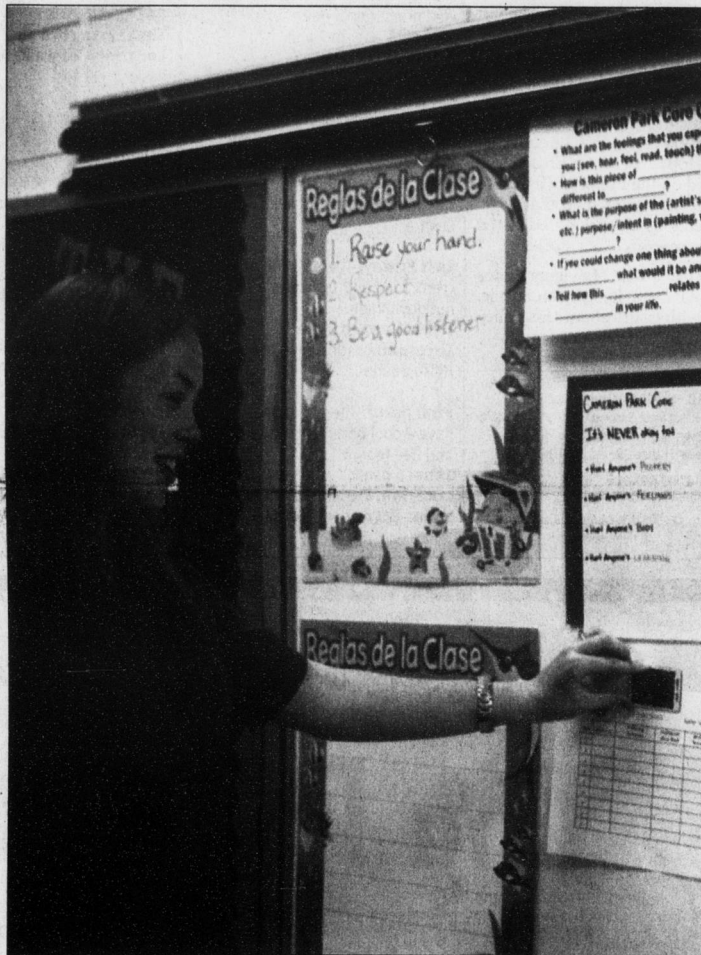 Reglas de la Clase
1. Raise your hand.
2. Respect
3. Be a good listener
Cameron Park Core
• What are the feelings that you
you (see, hear, feel, read, touch)
• How is this piece of ________
different to ________?
• What is the purpose of the (artist's
etc.) purpose/intent in (painting,
________?
• If you could change one thing about
________ what would it be and
• Tell how this ________ relates
________ in your life.
CAMERON PARK CODE
It's NEVER okay to:
• Hurt Anyone's PROPERTY
• Hurt Anyone's FEELINGS
• Hurt Anyone's BODY
• Hurt Anyone's LEARNING
Reglas de la Clase